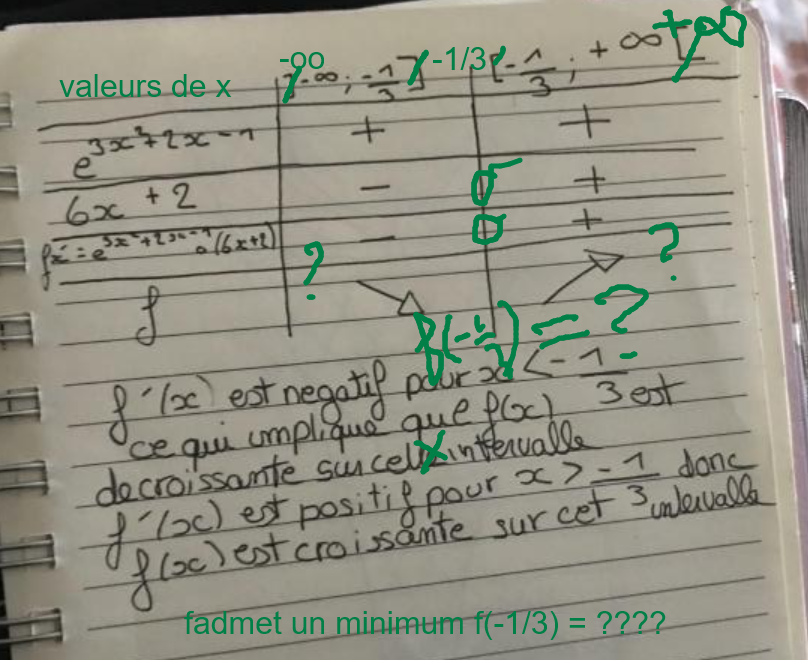 valeurs de x -∞ ]-∞ ; -1/3] -1/3 [-1/3 ; +∞[ +∞
e^{3x²+2x-1} + +
6x + 2 - 0 +
f'x = e^{3x²+2x-1} × (6x+2) - 0 +
f ? ?
f(-1/3) = ?
f'(x) est negatif pour x < -1/3
ce qui implique que f(x) est
decroissante sur cet intervalle
f'(x) est positif pour x > -1/3 donc
f(x) est croissante sur cet intervalle
fadmet un minimum f(-1/3) = ????